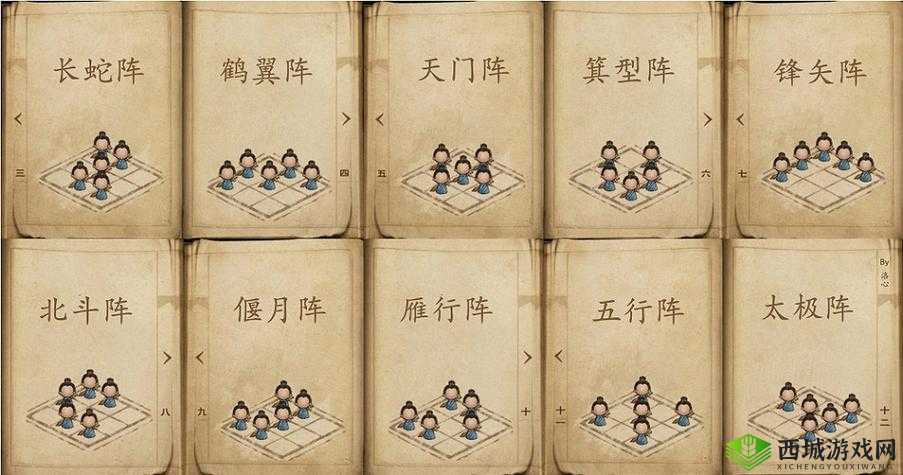 长蛇阵
三
鹤翼阵
四
天门阵
五
箕型阵
六
锋矢阵
七
北斗阵
八
偃月阵
九
雁行阵
十
五行阵
十一
太极阵
十二
By
洛心
西城游戏网
XICHENGYOUXIWANG